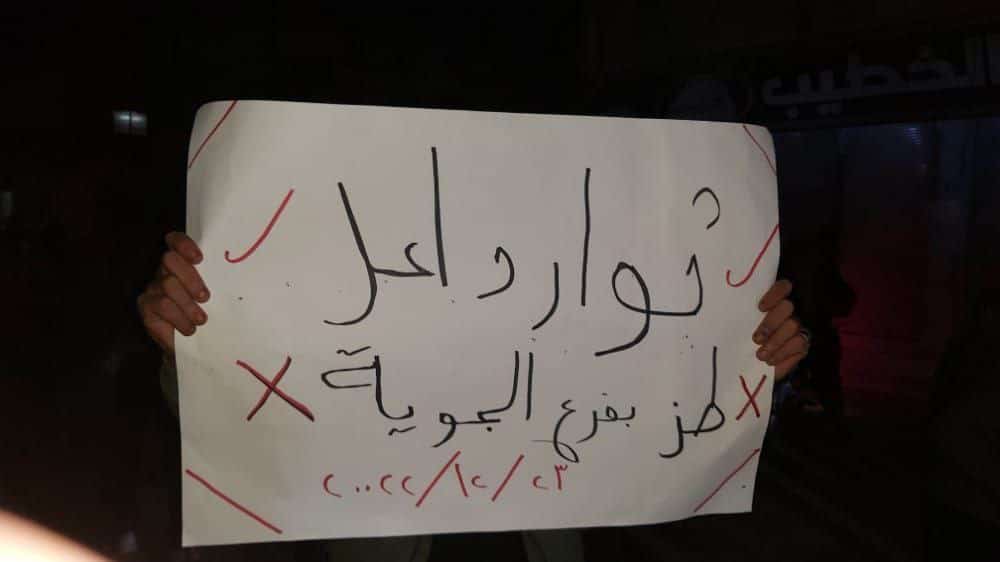 الخطيب
ثوار داعل
طز بفرع الجوية
٢٣/١٢/٢٠٢٢